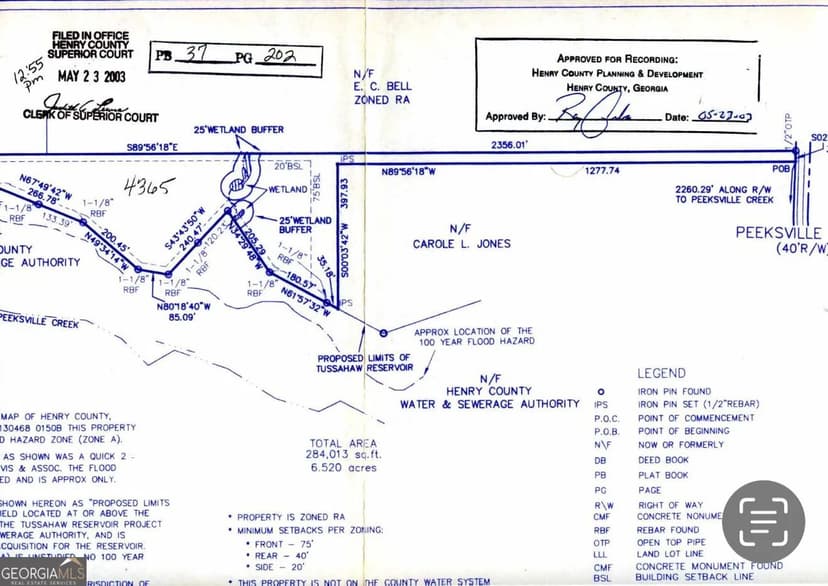 FILED IN OFFICE
HENRY COUNTY
SUPERIOR COURT
12:55 pm
MAY 23 2003
CLERK OF SUPERIOR COURT
PB 37 PG 202
N/F
E. C. BELL
ZONED RA
APPROVED FOR RECORDING:
HENRY COUNTY PLANNING & DEVELOPMENT
HENRY COUNTY, GEORGIA
Approved By: Date: 05-23-03
25'WETLAND BUFFER
S89°56'18"E
2356.01'
1/2"OTP
S02
20'BSL
IPS
N89°56'18"W
1277.74
POB
4365
WETLAND
75'BSL
397.93
2260.29' ALONG R/W
TO PEEKSVILLE CREEK
N67°49'42"W
266.78'
1-1/8"
RBF
133.39'
1-1/8"
RBF
200.45'
N49°34'14"W
S43°43'50"W
240.47'
120.23'
1-1/8"
RBF
25'WETLAND
BUFFER
N34°29'48"W
205.29
1-1/8"
RBF
S00°03'42"W
35.18'
N/F
CAROLE L. JONES
PEEKSVILLE
(40'R/W)
OUNTY
AGE AUTHORITY
1-1/8"
RBF
1-1/8"
RBF
N80°18'40"W
85.09'
180.57'
N61°57'32"W
IPS
PEEKSVILLE CREEK
APPROX LOCATION OF THE
100 YEAR FLOOD HAZARD
PROPOSED LIMITS OF
TUSSAHAW RESERVOIR
N/F
HENRY COUNTY
WATER & SEWERAGE AUTHORITY
LEGEND
O IRON PIN FOUND
IPS IRON PIN SET (1/2"REBAR)
P.O.C. POINT OF COMMENCEMENT
P.O.B. POINT OF BEGINNING
N\F NOW OR FORMERLY
DB DEED BOOK
PB PLAT BOOK
PG PAGE
R\W RIGHT OF WAY
CMF CONCRETE NONUME
RBF REBAR FOUND
OTP OPEN TOP PIPE
LLL LAND LOT LINE
CMF CONCRETE MONUMENT FOUND
BSL BUILDING SETBACK LINE
MAP OF HENRY COUNTY,
130468 0150B THIS PROPERTY
D HAZARD ZONE (ZONE A).
AS SHOWN WAS A QUICK 2 -
VIS & ASSOC. THE FLOOD
ED AND IS APPROX ONLY.
TOTAL AREA
284,013 sq.ft.
6.520 acres
SHOWN HEREON AS "PROPOSED LIMITS
IELD LOCATED AT OR ABOVE THE
THE TUSSAHAW RESERVOIR PROJECT
WERAGE AUTHORITY, AND IS
CQUISITION FOR THE RESERVOIR.
NO 100 YEAR
RISDICTION OF
* PROPERTY IS ZONED RA
* MINIMUM SETBACKS PER ZONING:
* FRONT - 75'
* REAR - 40'
* SIDE - 20'
* THIS PROPERTY IS NOT ON THE COUNTY WATER SYSTEM
GEORGIAMLS
REAL ESTATE SERVICES